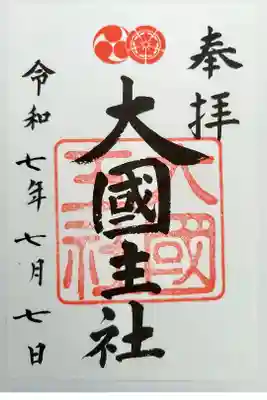 奉拝
大國主社
大國主社
令和七年七月七日